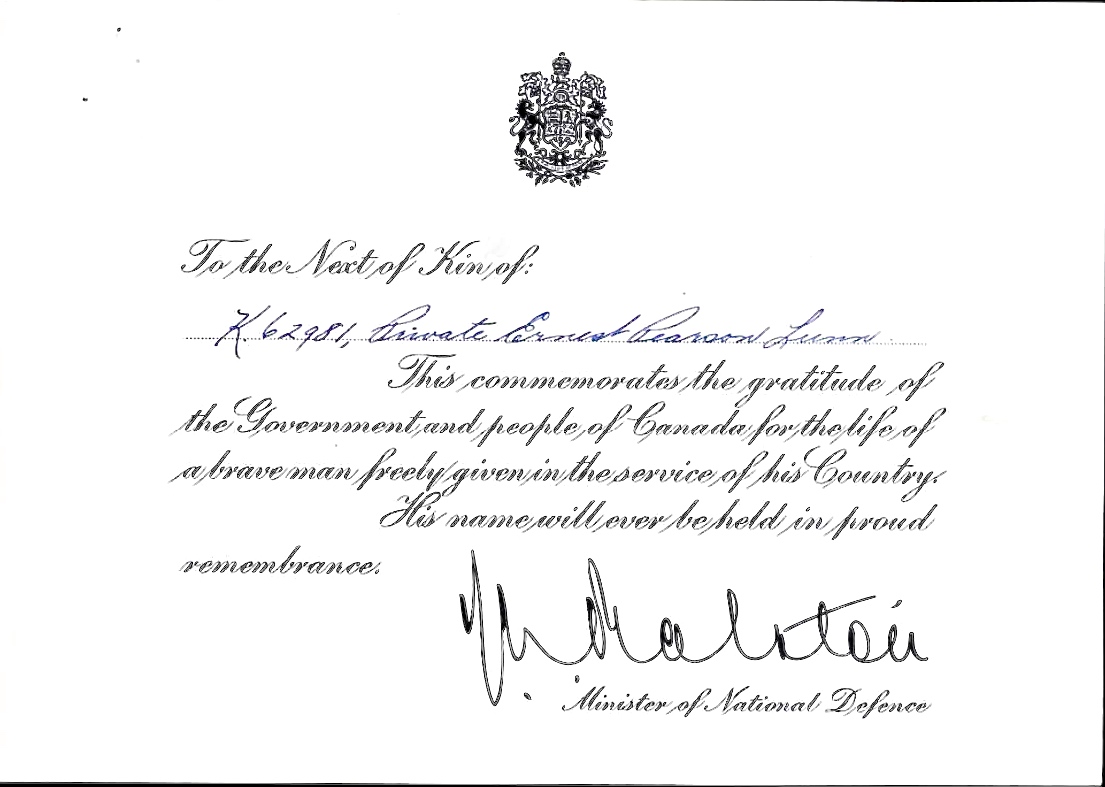 To the Next of Kin of:
K. 62981, Private Ernest Pearson Lunn
This commemorates the gratitude of
the Government and people of Canada for the life of
a brave man freely given in the service of his Country.
His name will ever be held in proud
remembrance.
Ralston
Minister of National Defence